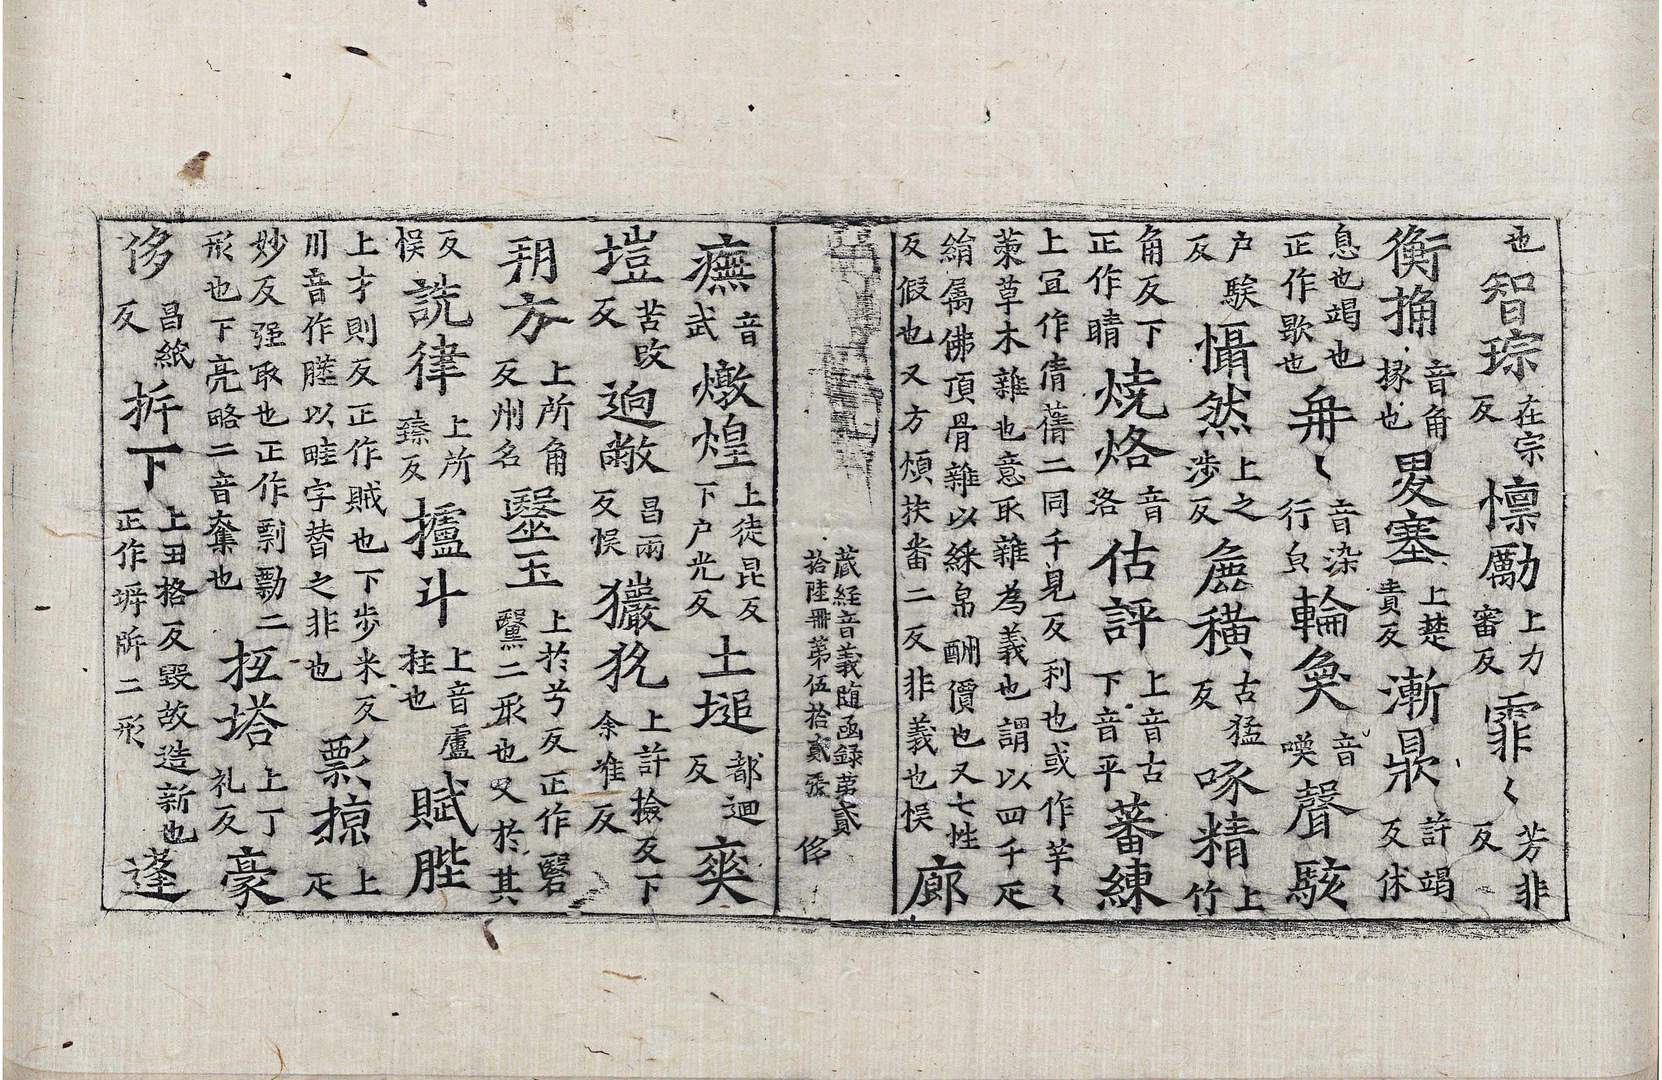 也智琮在宗反懍勵上力審反霏〻芳非反
衡捔音角捔也畟塞上楚責反漸歇許竭反休
息也竭也正作歇也冉〻音染行皃輪奐音喚聲駭
户騃反懾然上之涉反麁穬古猛反啄精上竹
角反下正作睛燒烙音洛估評上音古下音平蕃練
上宜作倩蒨二同千見反利也或作芊〻
菜草木雜也意取雜為義也謂以四千疋
絹属佛頂骨雜以綵帛酬價也又七性
反假也又方煩扶番二反非義也悮廊
藏經音義随函録第貳拾陸冊第伍拾貳張 侈
廡音武燉煌上徒昆反下户光反土塠都迴反爽
塏苦改反逈敞昌兩反悮玁狁上許撿反下余准反
朔方上所角反州名瑿玉上於兮反正作瑿黳二形也又於其
反悮詵律上所臻反攎斗上音盧拄也賦陛
上才則反正作賊也下步米反
川音作䏶以畦字替之非也剽掠上疋
妙反强取也正作剽勡二
形也下亮略二音奪也抵塔上丁礼反豪
侈昌紙反拆下上丑格反毀故造新也正作㙤㡿二形逢